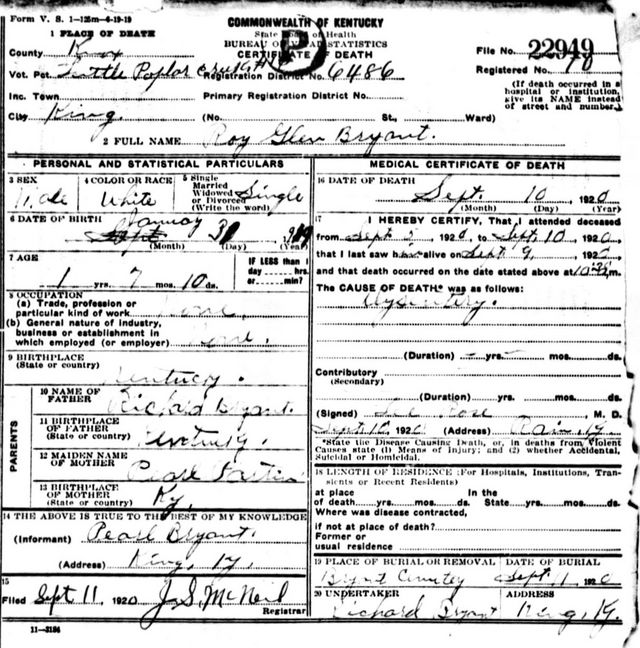 Form V. S. 1-125m-4-19-19
COMMONWEALTH OF KENTUCKY
State Board of Health
BUREAU OF VITAL STATISTICS
CERTIFICATE OF DEATH
1 PLACE OF DEATH
County Knox
File No. 22949
Vot. Pct. Little Poplar Creek Registration District No. 6486
Registered No. 78
Inc. Town Primary Registration District No.
(If death occurred in a hospital or institution, give its NAME instead of street and number.)
City King. (No. St., Ward)
2 FULL NAME Roy Glen Bryant.
PERSONAL AND STATISTICAL PARTICULARS
3 SEX Male
4 COLOR OR RACE White
5 Single Married Widowed or Divorced (Write the word) Single
6 DATE OF BIRTH
(Month) (Day) (Year)
7 AGE
1 yrs. 7 mos. 10 ds.
IF LESS than 1 day hrs. or min?
8 OCCUPATION
(a) Trade, profession or particular kind of work None.
(b) General nature of industry, business or establishment in which employed (or employer) None.
9 BIRTHPLACE (State or country) Kentucky.
PARENTS
10 NAME OF FATHER Richard Bryant.
11 BIRTHPLACE OF FATHER (State or country) Kentucky.
12 MAIDEN NAME OF MOTHER Pearl
13 BIRTHPLACE OF MOTHER (State or country) Ky.
14 THE ABOVE IS TRUE TO THE BEST OF MY KNOWLEDGE
(Informant) Pearl Bryant.
(Address) King, Ky.
15
Filed Sept 11, 1920 J. S. McNeil
Registrar
11-3184
MEDICAL CERTIFICATE OF DEATH
16 DATE OF DEATH
Sept. 10, 1920
(Month) (Day) (Year)
17 I HEREBY CERTIFY, That I attended deceased
from Sept 5 1920, to Sept. 10 1920
that I last saw him alive on Sept 9, 1920
and that death occurred on the date stated above at m.
The CAUSE OF DEATH* was as follows:
Dysentery.
(Duration) yrs. mos. ds.
Contributory
(Secondary)
(Duration) yrs. mos. ds.
(Signed) M. D.
Sept 10, 1920 (Address) Ky.
*State the Disease Causing Death, or, in deaths from Violent
Causes state (1) Means of Injury; and (2) whether Accidental,
Suicidal or Homicidal.
18 LENGTH OF RESIDENCE (For Hospitals, Institutions, Transients or Recent Residents)
at place of death yrs. mos. ds. In the State yrs. mos. ds.
Where was disease contracted,
if not at place of death?
Former or
usual residence
19 PLACE OF BURIAL OR REMOVAL DATE OF BURIAL
Brynt Cemetey Sept. 11 1920
20 UNDERTAKER ADDRESS
Richard Bryant King, Ky.